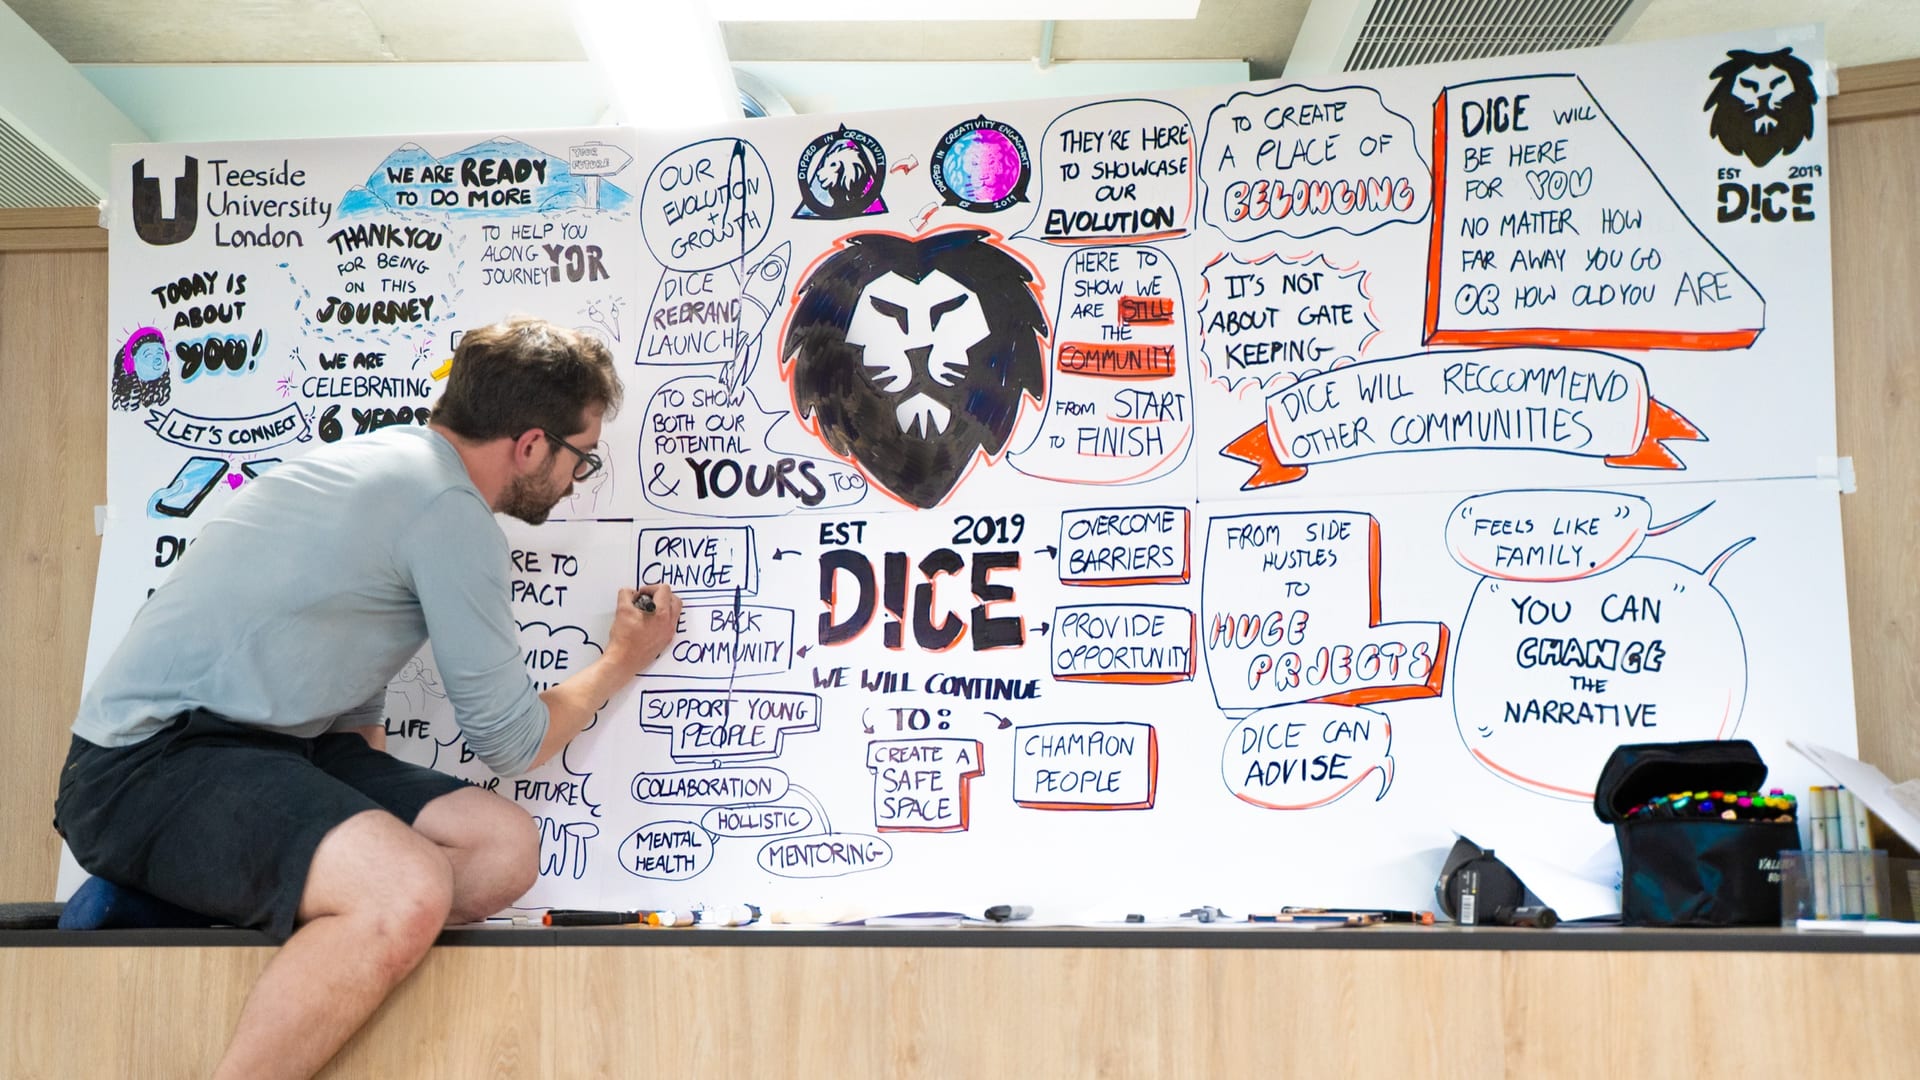 Teeside
University
London
WE ARE READY
TO DO MORE
YOUR
FUTURE
THANKYOU
FOR BEING
ON THIS
JOURNEY
TO HELP YOU
ALONG YOR
JOURNEY
TODAY IS
ABOUT
YOU!
WE ARE
CELEBRATING
6 YEARS
LET'S CONNECT
RE TO
PACT
VIDE
LIFE
FUTURE
OUR
EVOLUTION
+
GROWTH
DICE
REBRAND
LAUNCH
TO SHOW
BOTH OUR
POTENTIAL
& YOURS TOO
DIPPED IN CREATIVITY
DIPPED IN CREATIVITY
2019
THEY'RE HERE
TO SHOWCASE
OUR
EVOLUTION
HERE TO
SHOW WE
ARE STILL
THE
COMMUNITY
FROM START
TO FINISH
TO CREATE
A PLACE OF
BELONGING
IT'S NOT
ABOUT GATE
KEEPING
DICE WILL
BE HERE
FOR YOU
NO MATTER HOW
FAR AWAY YOU GO
OR HOW OLD YOU ARE
EST 2019
DICE
DICE WILL RECCOMMEND
OTHER COMMUNITIES
DRIVE
CHANGE
BACK
COMMUNITY
SUPPORT YOUNG
PEOPLE
COLLABORATION
HOLLISTIC
MENTAL
HEALTH
MENTORING
EST 2019
DICE
WE WILL CONTINUE
TO:
OVERCOME
BARRIERS
PROVIDE
OPPORTUNITY
CREATE A
SAFE
SPACE
CHAMPION
PEOPLE
FROM SIDE
HUSTLES
TO
HUGE
PRJECTS
DICE CAN
ADVISE
"FEELS LIKE
FAMILY."
"YOU CAN"
CHANGE
THE
NARRATIVE